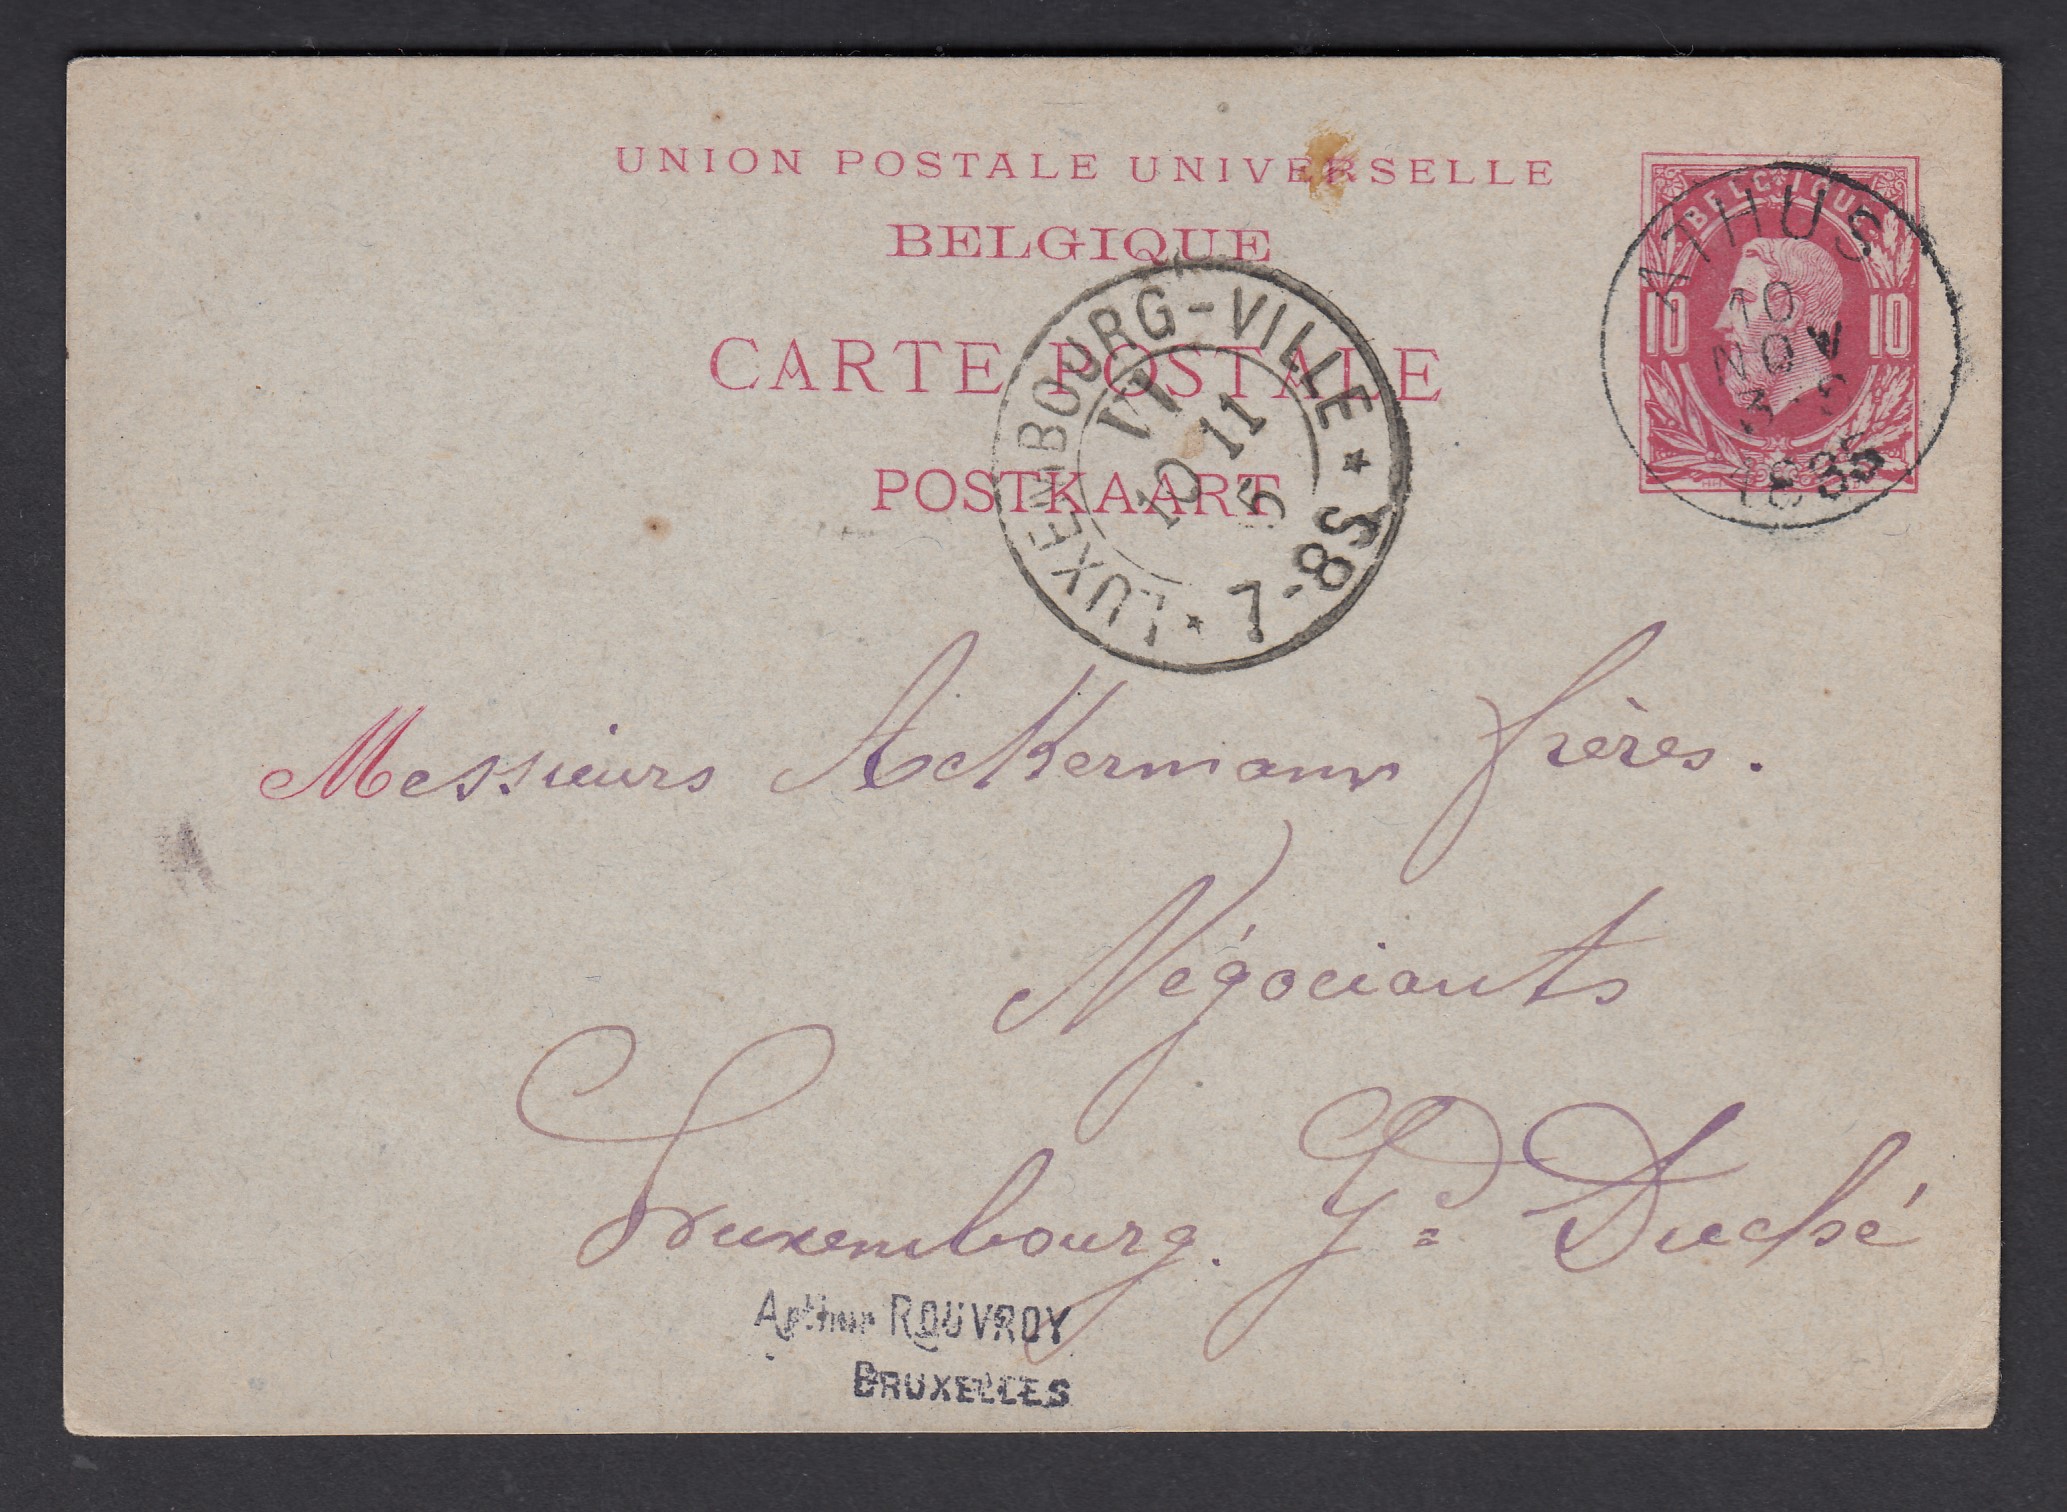 UNION POSTALE UNIVERSELLE
BELGIQUE
CARTE POSTALE
POSTKAART
BELGIQUE
10 10
ATHUS
10
NOV
1885
LUXEMBOURG-VILLE
VI
10 11
5
7-8S
Messieurs Ackermann frères.
Négociants
Luxembourg. Gd Duché
Arthur ROUVROY
BRUXELLES